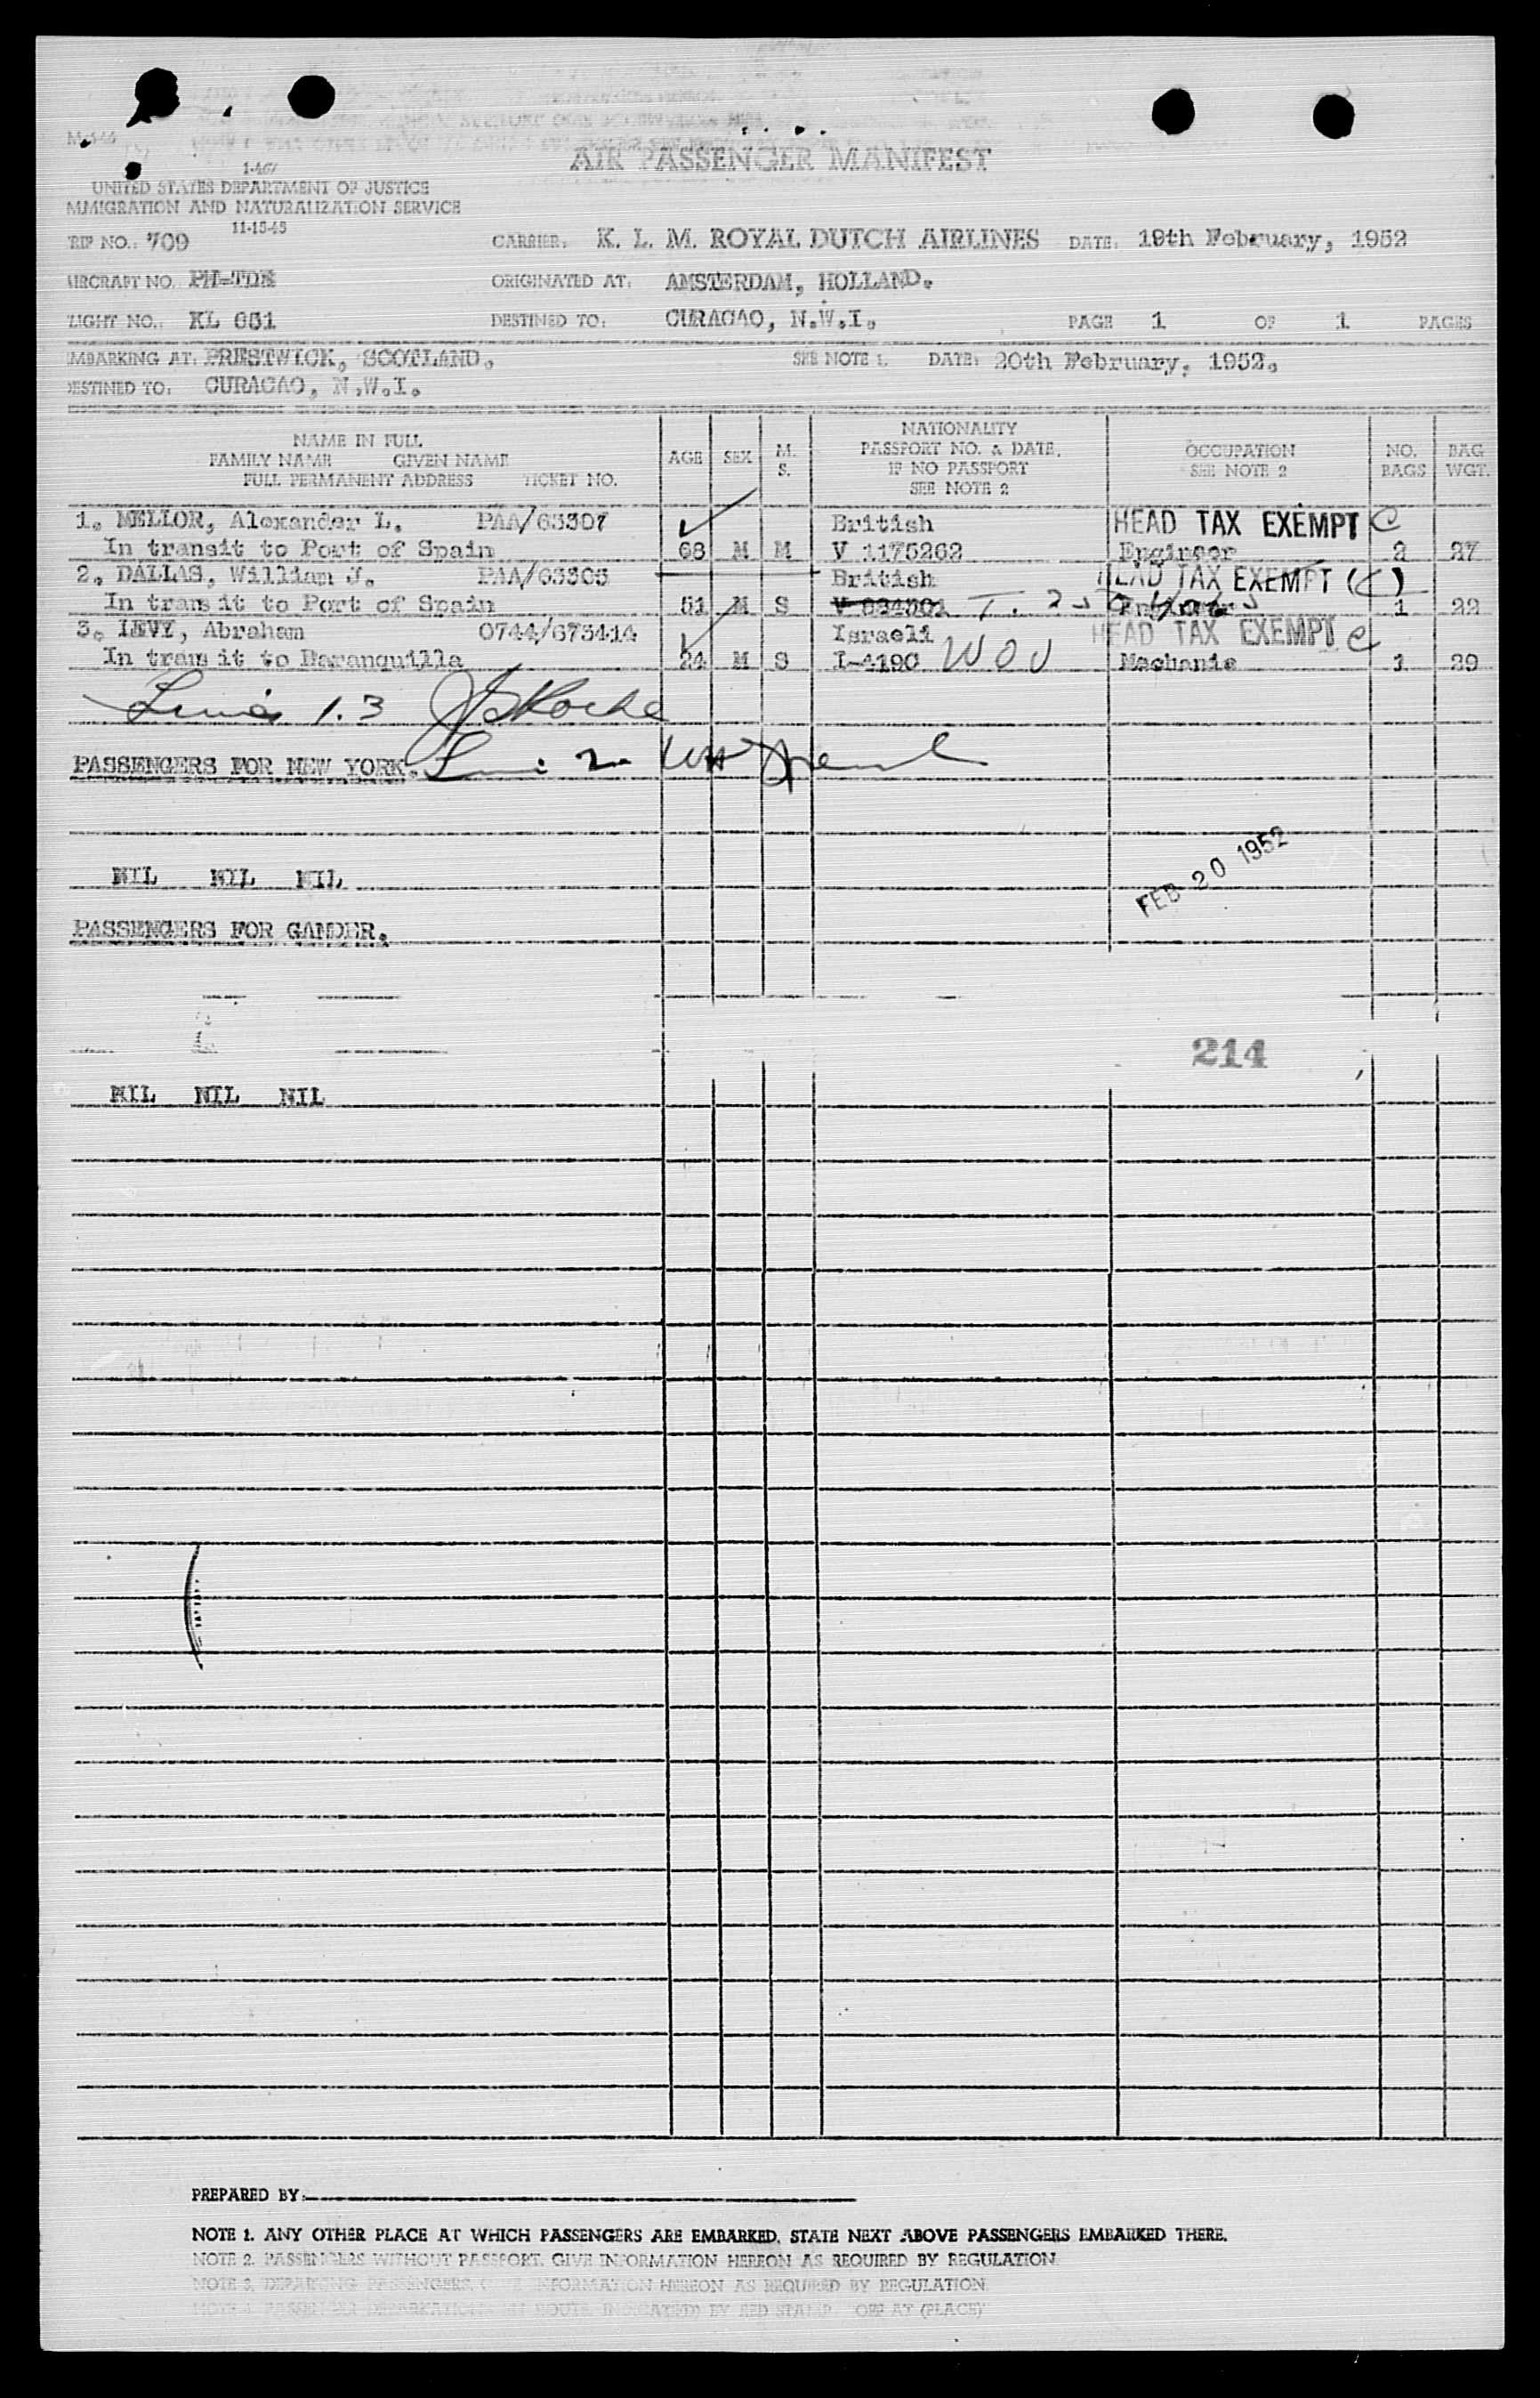 AIR PASSENGER MANIFEST
1-467
UNITED STATES DEPARTMENT OF JUSTICE
MMIGRATION AND NATURALIZATION SERVICE
11-15-45
TRIP NO.: 709 CARRIER: K. L. M. ROYAL DUTCH AIRLINES DATE: 19th February, 1952
AIRCRAFT NO. ORIGINATED AT: AMSTERDAM, HOLLAND.
LIGHT NO.: KL 651 DESTINED TO: CURACAO, N.W.I. PAGE 1 OF 1 PAGES
MBARKING AT: PRESTWICK, SCOTLAND. SEE NOTE 1. DATE: 20th February, 1952.
DESTINED TO: CURACAO, N.W.I.
NAME IN FULL
FAMILY NAME GIVEN NAME
FULL PERMANENT ADDRESS TICKET NO.
AGE SEX M. S.
NATIONALITY
PASSPORT NO. & DATE.
IF NO PASSPORT
SEE NOTE 2
OCCUPATION
SEE NOTE 2
NO. BAGS
BAG WGT.
1. MELLOR, Alexander L. PAA/63307 British HEAD TAX EXEMPT C
In transit to Port of Spain 68 M M V 1175262 Engineer 2 27
2. DALLAS, William J. PAA/63305 British HEAD TAX EXEMPT (C)
In transit to Port of Spain 51 M S 1 22
3. LEVY, Abraham 0744/673414 Israeli HEAD TAX EXEMPT C
In transit to Baranquilla 24 M S I-4190 WOV Mechanic 1 29
Lines 1. 3
PASSENGERS FOR NEW YORK. 2
NIL NIL NIL
FEB 20 1952
PASSENGERS FOR GANDER.
214
NIL NIL NIL
PREPARED BY:
NOTE 1. ANY OTHER PLACE AT WHICH PASSENGERS ARE EMBARKED, STATE NEXT ABOVE PASSENGERS EMBARKED THERE.
NOTE 2. PASSENGERS WITHOUT PASSPORT, GIVE INFORMATION HEREON AS REQUIRED BY REGULATION.
NOTE 3. DEPARTING PASSENGERS, GIVE INFORMATION HEREON AS REQUIRED BY REGULATION.